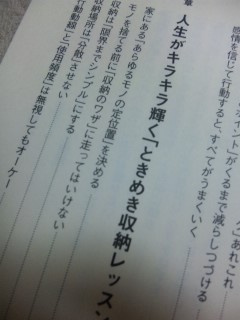 ポイント」がくるまで減らしつづける
感情を信じて行動すると、すべてがうまくいく
章 人生がキラキラ輝く「ときめき収納レッスン
家にある「あらゆるモノの定位置」を決める
モノを捨てる前に「収納のワザ」に走ってはいけない
収納は「限界までシンプル」にする
収納場所は「分散」させない
行動動線」と「使用頻度」は無視してもオーケー